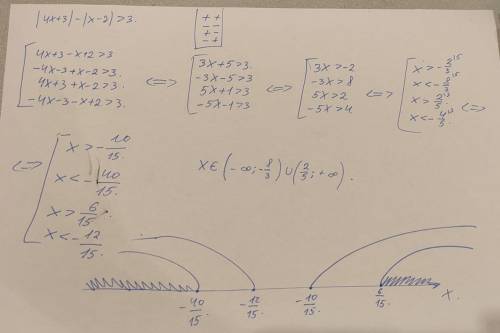 |4x+3|-|x-2|>3.
+ +
- +
- -
+ -
4x+3-x+2>3
-4x-3+x-2>3.
4x+3+x-2>3.
-4x-3-x+2>3.
<=>
3x+5>3.
-3x-5>3
5x+1>3
-5x-1>3
<=>
3x>-2
-3x>8
5x>2
-5x>4
<=>
x>-2/3
x<-8/3
x>2/5
x<-4/5
<=>
<=>
x>-10/15.
x<-40/15
x>6/15.
x<-12/15.
x∈(-∞;-8/3)∪(2/5;+∞).
-40/15 -12/15. -10/15 6/15 x.